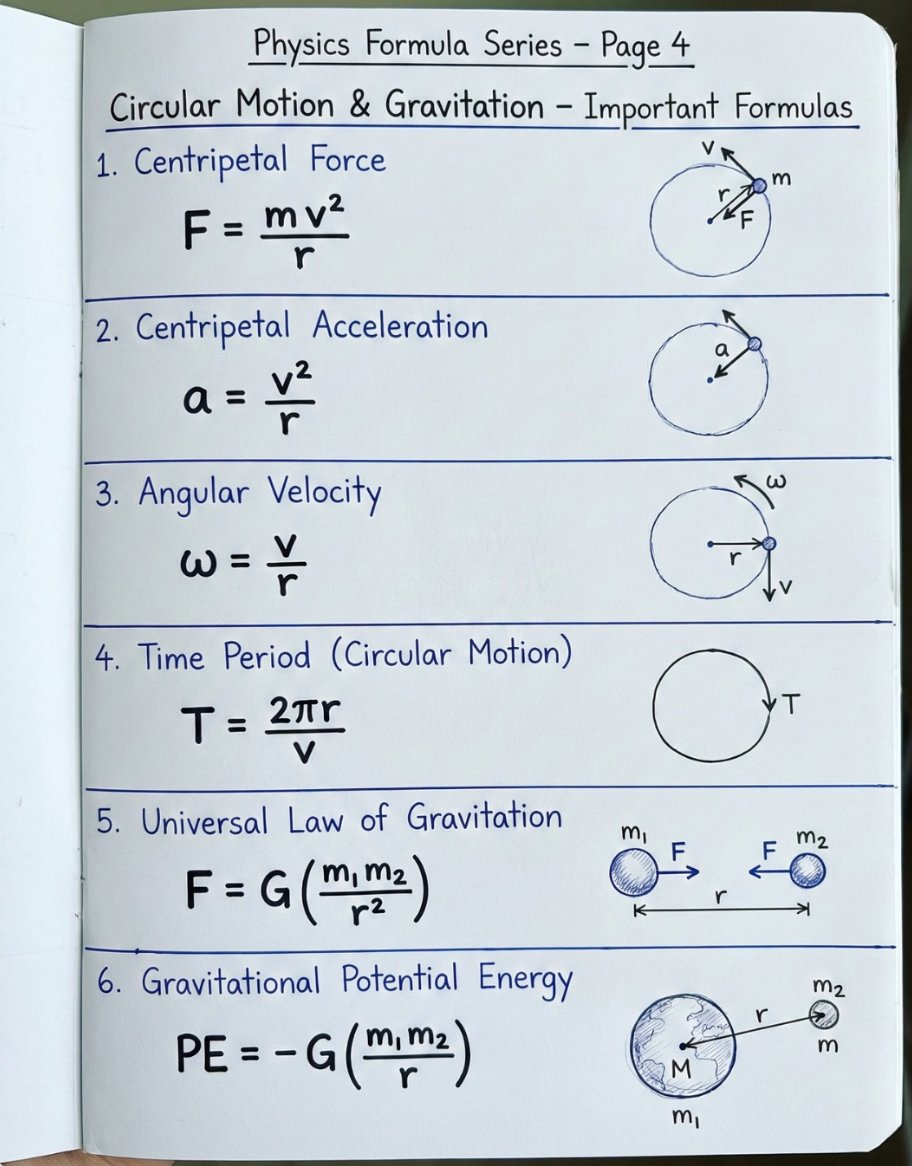 Physics Formula Series – Page 4
Circular Motion & Gravitation – Important Formulas
1. Centripetal Force
F = mv²/r
v
m
r
F
2. Centripetal Acceleration
a = v²/r
a
3. Angular Velocity
ω = v/r
ω
r
v
4. Time Period (Circular Motion)
T = 2πr/v
T
5. Universal Law of Gravitation
F = G(m₁m₂/r²)
m₁
F
F
m₂
r
6. Gravitational Potential Energy
PE = -G(m₁m₂/r)
m₂
r
m
M
m₁